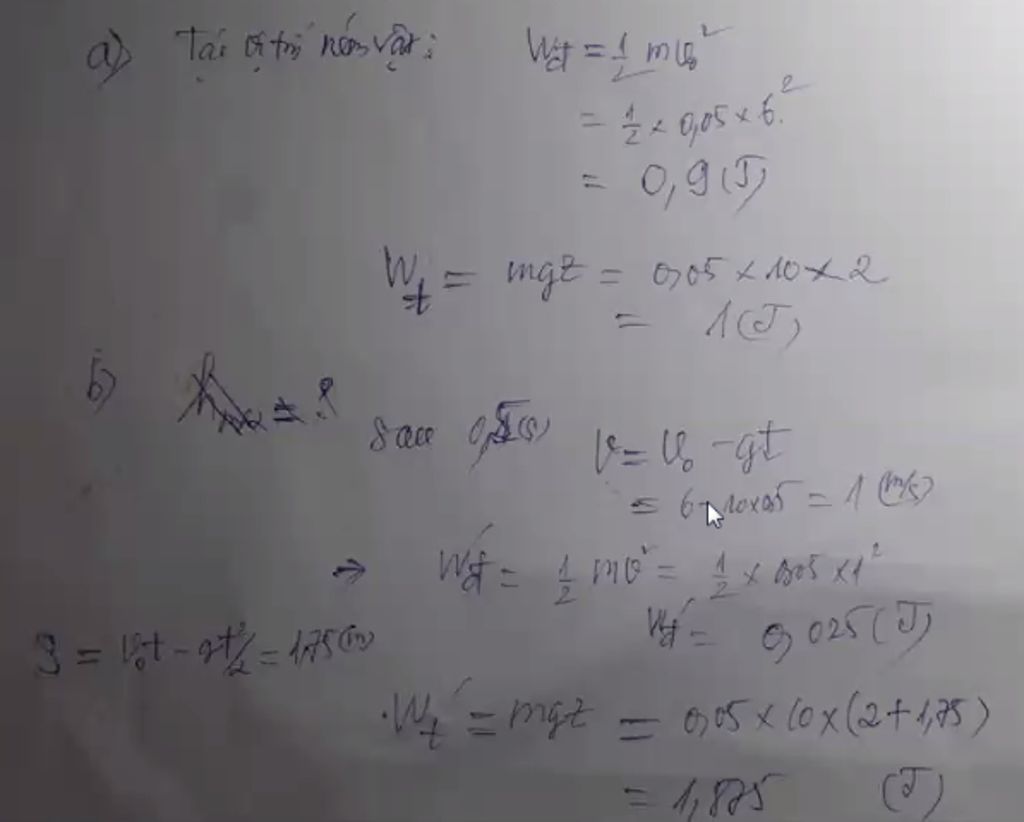 a) Tại vị trí ném vật: Wđ = 1/2 mv₀²
= 1/2 × 0,05 × 6²
= 0,9 (J)
Wt = mgz = 0,05 × 10 × 2
= 1 (J)
b)
sau 0,5(s) v = v₀ - gt
= 6 - 10×0,5 = 1 (m/s)
→ Wđ' = 1/2 mv² = 1/2 × 0,05 × 1²
Wđ' = 0,025 (J)
S = v₀t - gt²/2 = 1,75 (m)
Wt' = mgz = 0,05 × 10 × (2 + 1,75)
= 1,875 (J)